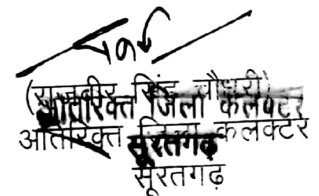 (राजवीर सिंह चौधरी)
अतिरिक्त जिला कलेक्टर
अतिरिक्त जिला कलेक्टर
सूरतगढ़
सूरतगढ़